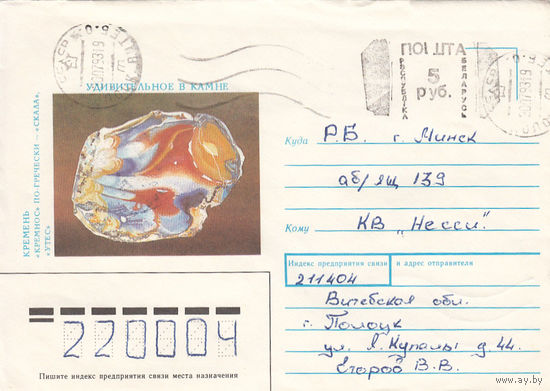 УДИВИТЕЛЬНОЕ В КАМНЕ
КРЕМЕНЬ
«КРЕМНОС» ПО-ГРЕЧЕСКИ — «СКАЛА»,
«УТЕС»
ПОШТА
РЭСПУБЛІКА
5
руб.
БЕЛАРУСЬ
Куда Р.Б. г. Минск
аб/ящ 139
Кому КВ „Несси".
Индекс предприятия связи и адрес отправителя
211404
Витебская обл.
г. Полоцк
ул. Я. Купалы д. 44.
Егоров В.В.
220004
Пишите индекс предприятия связи места назначения
www.ay.by